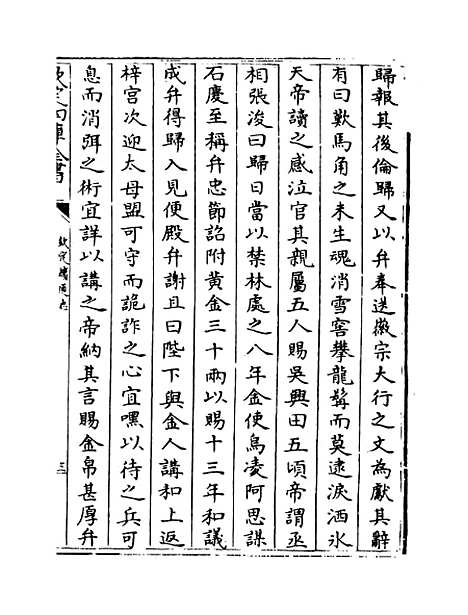 歸報其後倫歸又以弁奉送徽宗大行之文為獻其辭
有曰歎馬角之未生魂消雪窖攀龍髯而莫逮淚洒氷
天帝讀之感泣官其親屬五人賜吳興田五頃帝謂丞
相張浚曰歸日當以禁林處之八年金使烏凌阿思謀
石慶至稱弁忠節詔附黄金三十兩以賜十三年和議
成弁得歸入見便殿弁謝且曰陛下與金人講和上返
梓宫次迎太母盟可守而詭詐之心宜嘿以待之兵可
息而消弭之術宜詳以講之帝納其言賜金帛甚厚弁
欽定四庫全書
欽定續通志
三